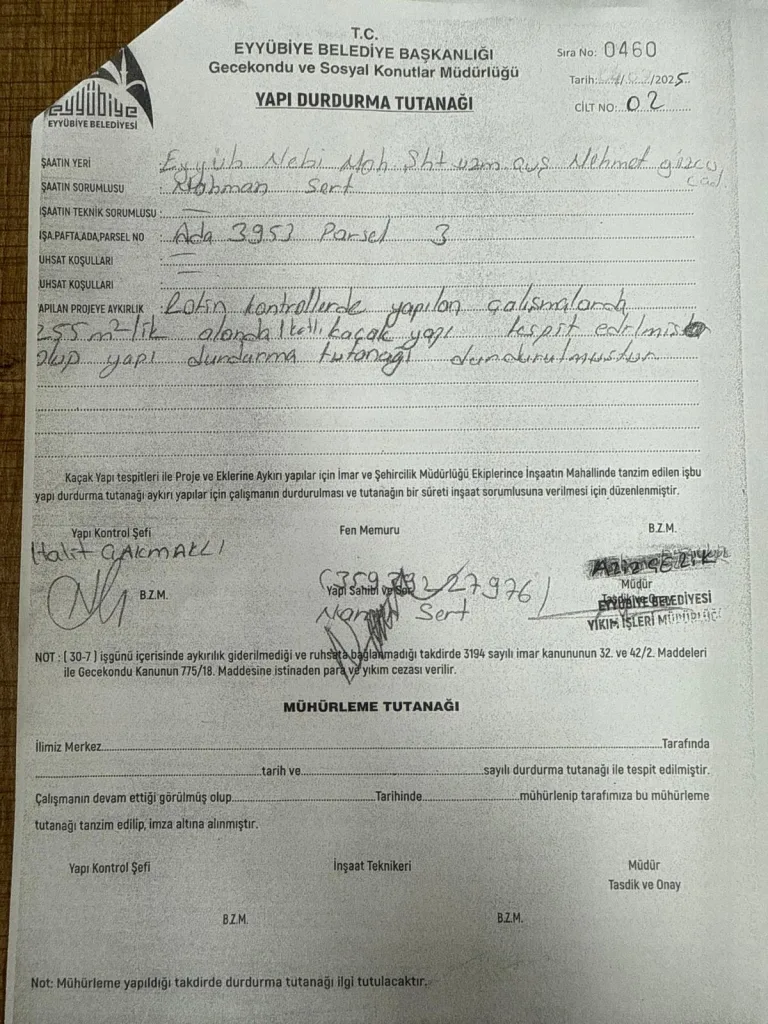 T.C.
EYYÜBİYE BELEDİYE BAŞKANLIĞI
Gecekondu ve Sosyal Konutlar Müdürlüğü
YAPI DURDURMA TUTANAĞI
Sıra No: 0460
Tarih: /2025
CİLT NO: 02
eyyübiye
EYYÜBİYE BELEDİYESİ
ŞAATIN YERİ Eyyüb Nebi Mah Şht uzm çvş Mehmet gözcü cad.
ŞAATIN SORUMLUSU : Sert
İŞAATIN TEKNİK SORUMLUSU : —
IŞA,PAFTA,ADA,PARSEL NO : Ada 3953 Parsel 3
UHSAT KOŞULLARI : —
UHSAT KOŞULLARI
APILAN PROJEYE AYKIRLIK : Rotin kontrollerde yapılan çalışmalarda
255 m²lik alanda 1 katlı kaçak yapı tespit edilmiş
olup yapı durdurma tutanağı durdurulmuştur
Kaçak Yapı tespitleri ile Proje ve Eklerine Aykırı yapılar için İmar ve Şehircilik Müdürlüğü Ekiplerince İnşaatın Mahallinde tanzim edilen işbu
yapı durdurma tutanağı aykırı yapılar için çalışmanın durdurulması ve tutanağın bir sûreti inşaat sorumlusuna verilmesi için düzenlenmiştir.
Yapı Kontrol Şefi Fen Memuru B.Z.M.
Halit ÇAKMAKLI
B.Z.M. Yapı Sahibi Müdür
Sert EYYÜBİYE BELEDİYESİ
YIKIM İŞLERİ Müdürlüğü
NOT : ( 30-7 ) işgünü içerisinde aykırılık giderilmediği ve ruhsata bağlanmadığı takdirde 3194 sayılı imar kanununun 32. ve 42/2. Maddeleri
ile Gecekondu Kanunun 775/18. Maddesine istinaden para ve yıkım cezası verilir.
MÜHÜRLEME TUTANAĞI
İlimiz Merkez Tarafında
tarih ve sayılı durdurma tutanağı ile tespit edilmiştir.
Çalışmanın devam ettiği görülmüş olup Tarihinde mühürlenip tarafımıza bu mühürleme
tutanağı tanzim edilip, imza altına alınmıştır.
Yapı Kontrol Şefi İnşaat Teknikeri Müdür
Tasdik ve Onay
B.Z.M. B.Z.M.
Not: Mühürleme yapıldığı takdirde durdurma tutanağı ilgi tutulacaktır.